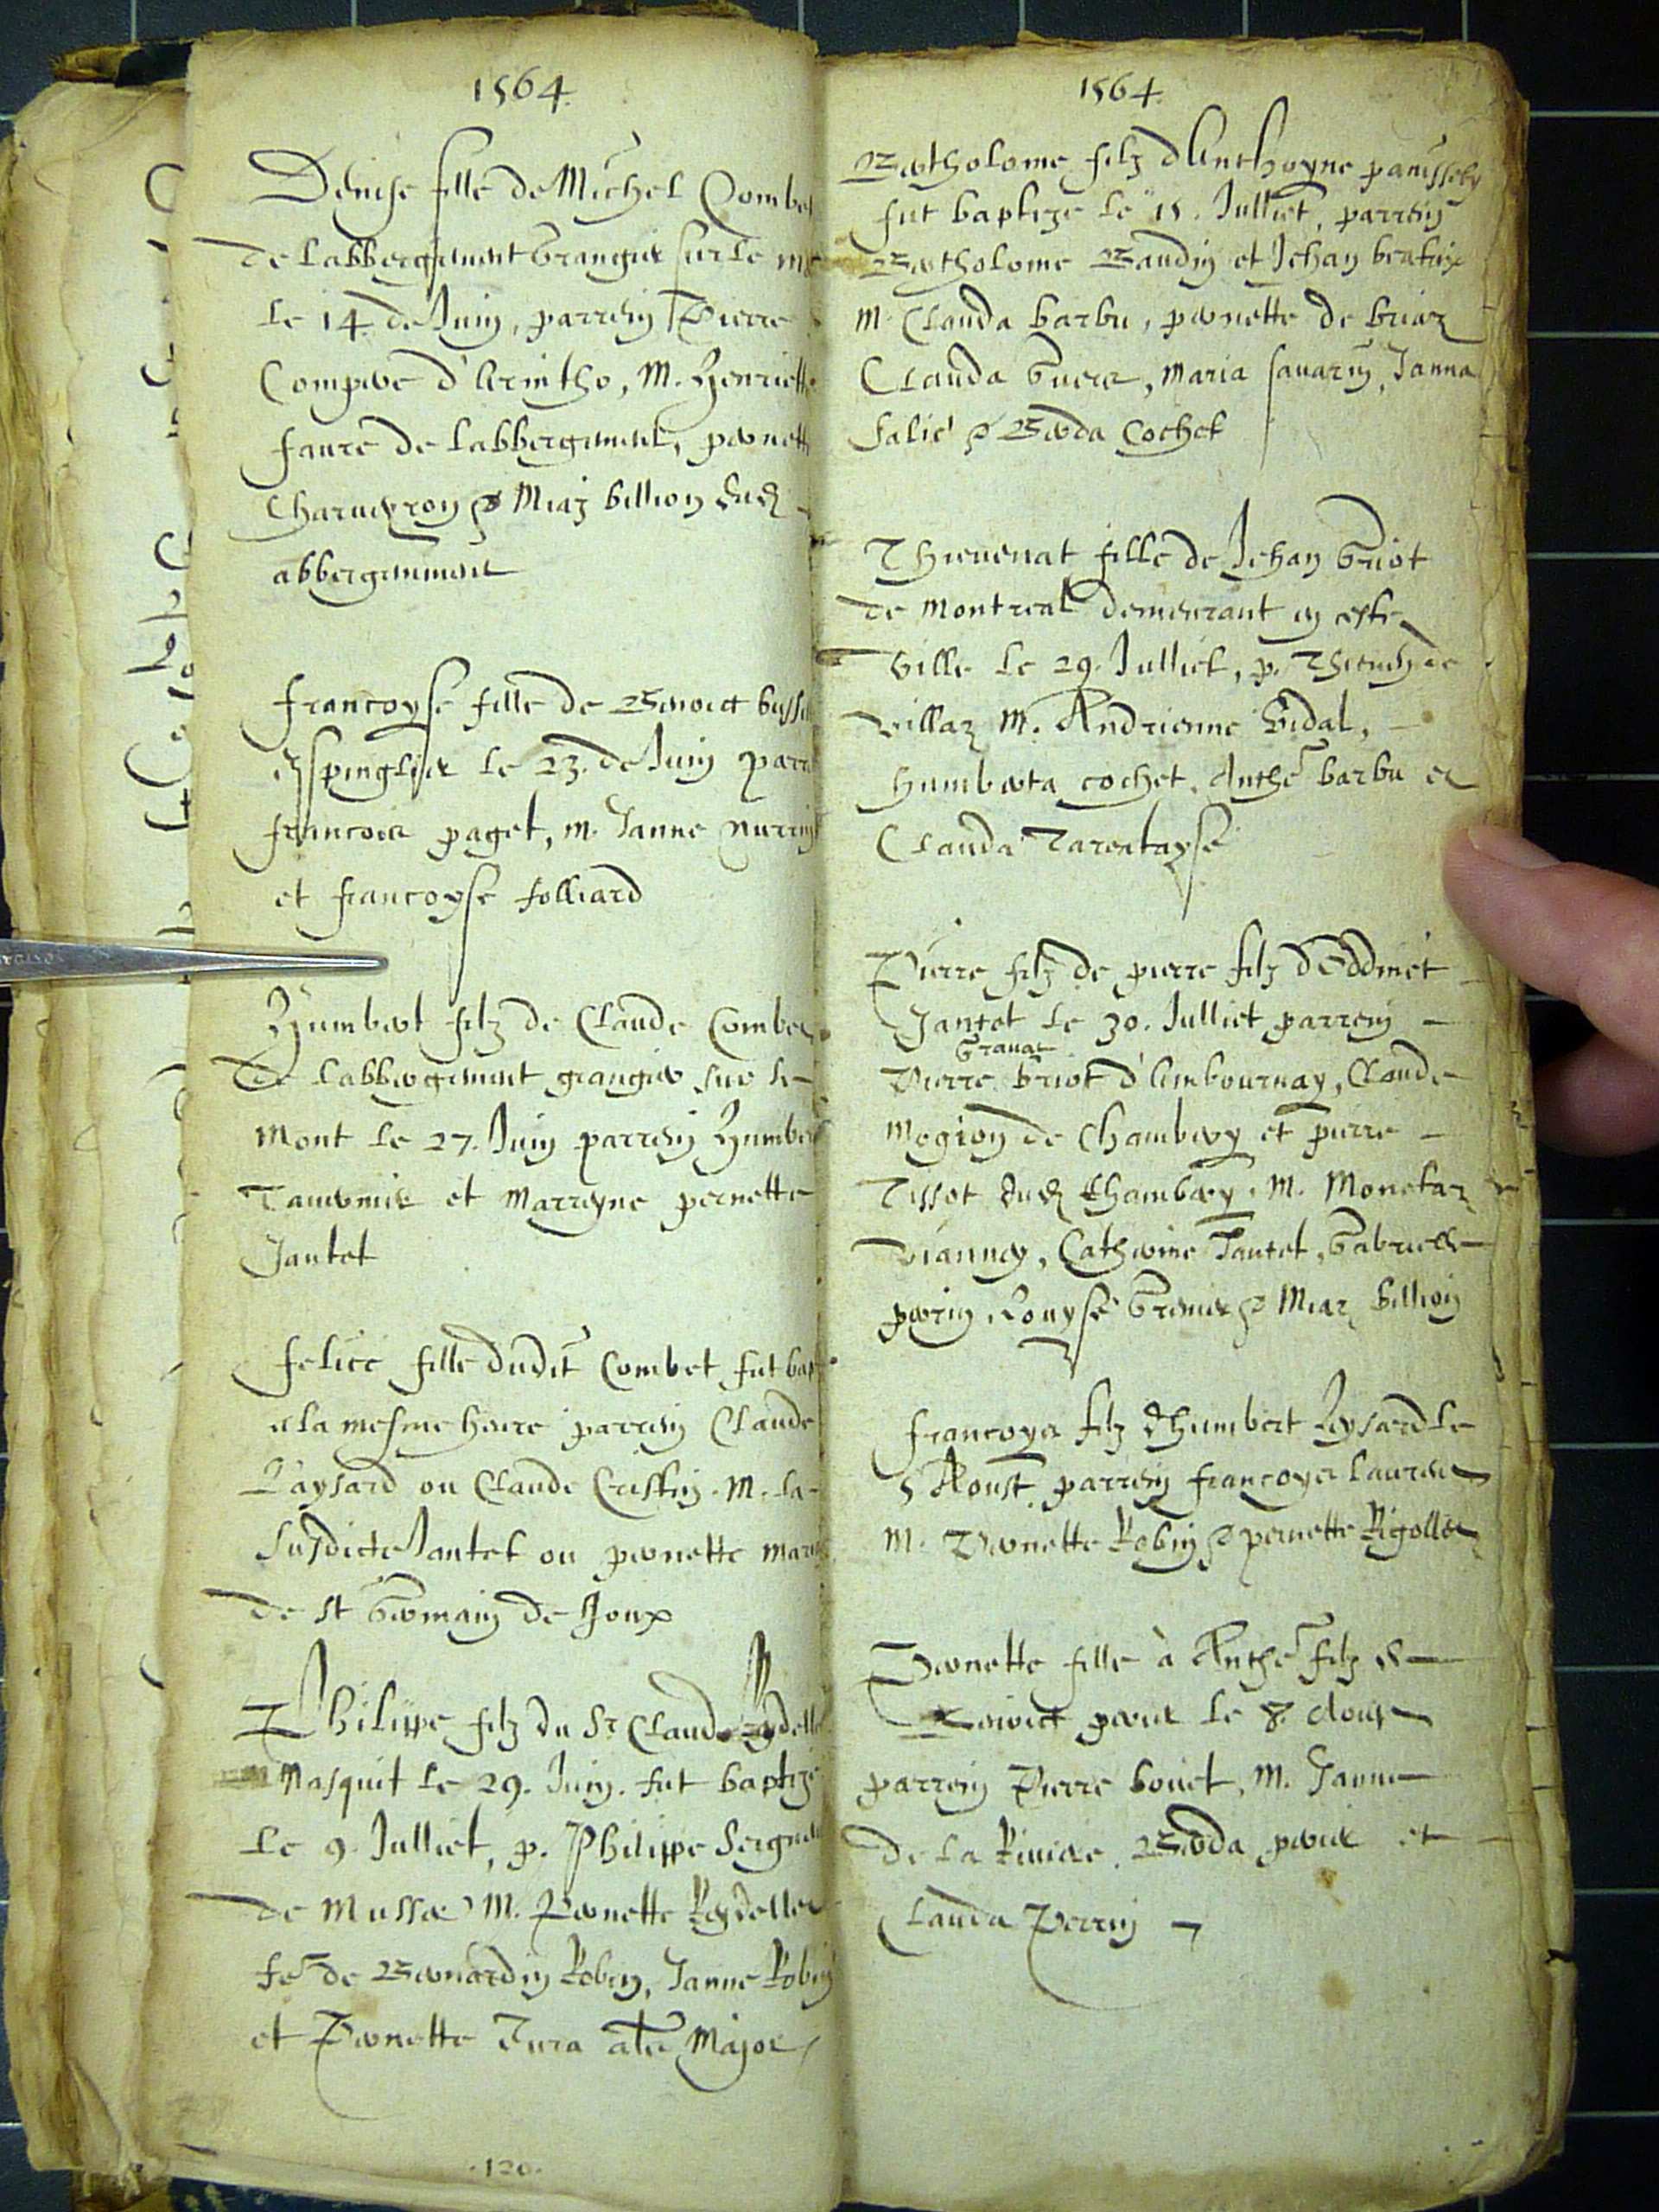 1564.
Denise fille de Michel Combet
de labbergement Grangier sur le m
le 14. de Juin, parrein Pierre
Compare d'Arintho, M. Henriette
faure de labbergement, pernette
Charueyron & Miaz billion dud
abbergemment
francoyse fille de Benoict
espinglier le 23. de Juin parr
francois paget, m. Janne
et francoyse folliard
Humbert filz de Claude Combet
de labbergement grangier sur le
Mont le 27. Juin parrein Humbert
et Marreyne pernette
Jantet
felice fille dudit Combet fut bap
a la mesme heure parrein Claude
Paysard ou Claude Crestin. M. la
susdicte Jantet ou pernette
de St Germain de Joux
Philippe filz du Sr Claude Reydellet
Nasquit le 29. Juin. fut baptizé
le 9. Julliet, p. Philippe Seigneur
de Mussel M. Pernette Reydellet
fe de Bernardin Robin, Janne Robin
et Pernette Jura Major
.120.
1564.
Bartholome filz d'Anthoyne
fut baptize le 15. Julliet, parrein
Bartholome Baudin et Jehan beatrix
M. Clauda barbu, pernette de briaz
Clauda Guerre, Maria Sauarin, Janna
Salié & Berda Cochet
Thieuenat fille de Jehan Griot
de Montreal demeurant en ceste
Ville le 29. Julliet, p.
villaz M. Andrienne Vidal,
humberta cochet. Anthe barbu et
Clauda Tarentayse
Pierre filz de pierre filz d'Eddmet
Jantet le 30. Julliet parrein
Granat
Pierre briot d'Ambournay, Claude
Mogion de Chambery et pierre
Tissot dud Chambery. M. Monetaz
Vianney, Catherine Jantet, Gabrielle
perrin, Louyse Grenier & Miaz billion
francoys filz d'humbert Leysard le
5 Aoust, parrein francoys laurent
M. Pernette Robin & pernette Rigollet
Pernette fille à Anthe filz de
Benoict le 8. doust
parrein Pierre bouet, M. Janne
de la Riuiere, Berda et
Clauda Perrin